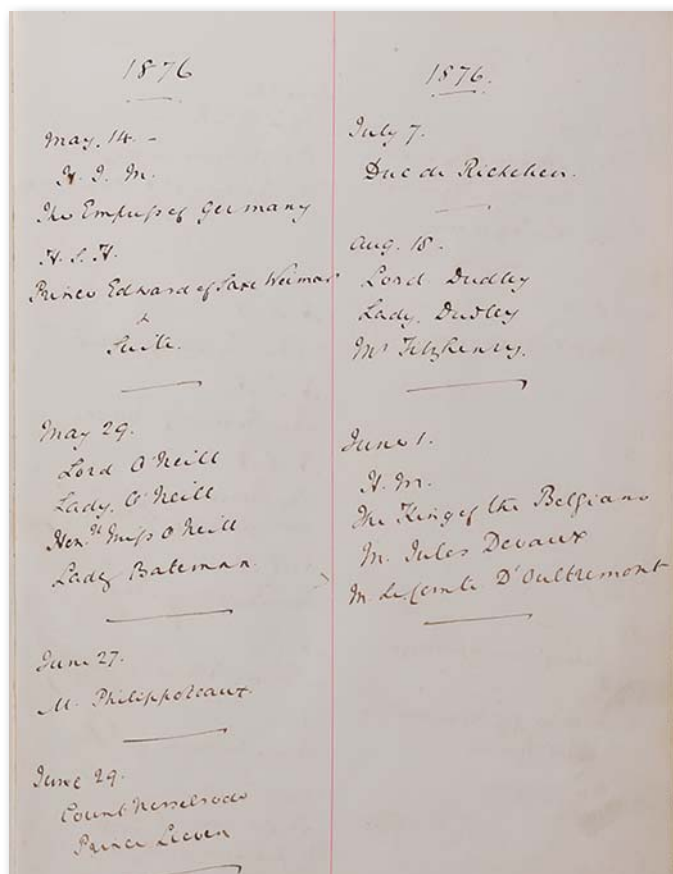 1876
May. 14. -
H. I. M.
The Empress of Germany
H. S. H.
Prince Edward of Saxe Weimar
&
Suite.
May 29.
Lord O'Neill
Lady. O'Neill
Hon.ble Miss O'Neill
Lady Bateman.
June 27.
M. Philippoteaux.
June 29.
Count Nesselrode
Prince Lieven
1876.
July 7.
Duc de Richelieu.
Aug. 18.
Lord Dudley
Lady. Dudley
Mr Fitzhenry.
June 1.
H. M.
The King of the Belgians
M. Jules Devaux
M. Le Comte D'Oultremont